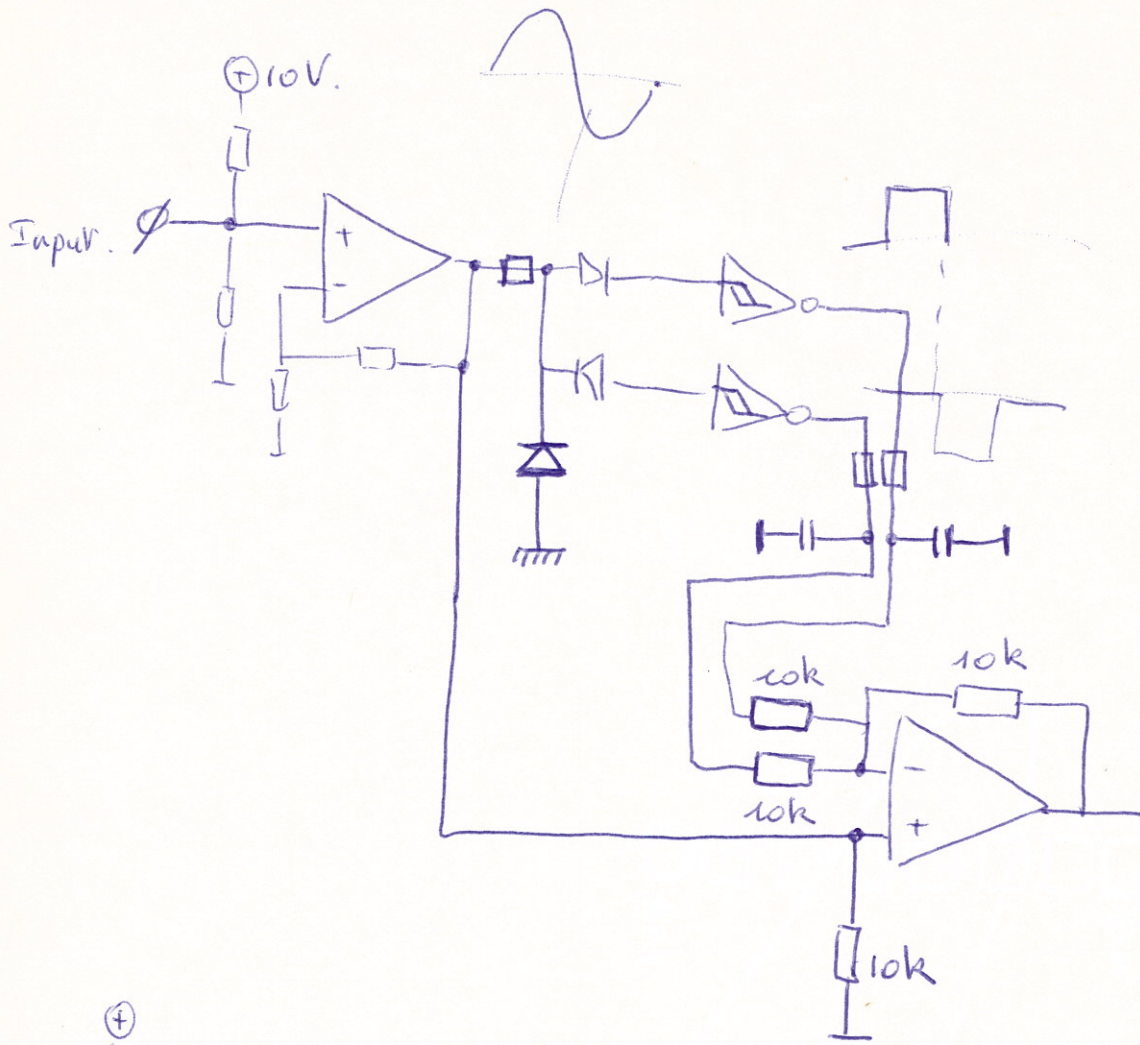 + 10V.
Input.
+
-
10k
10k
-
10k
+
10k
+